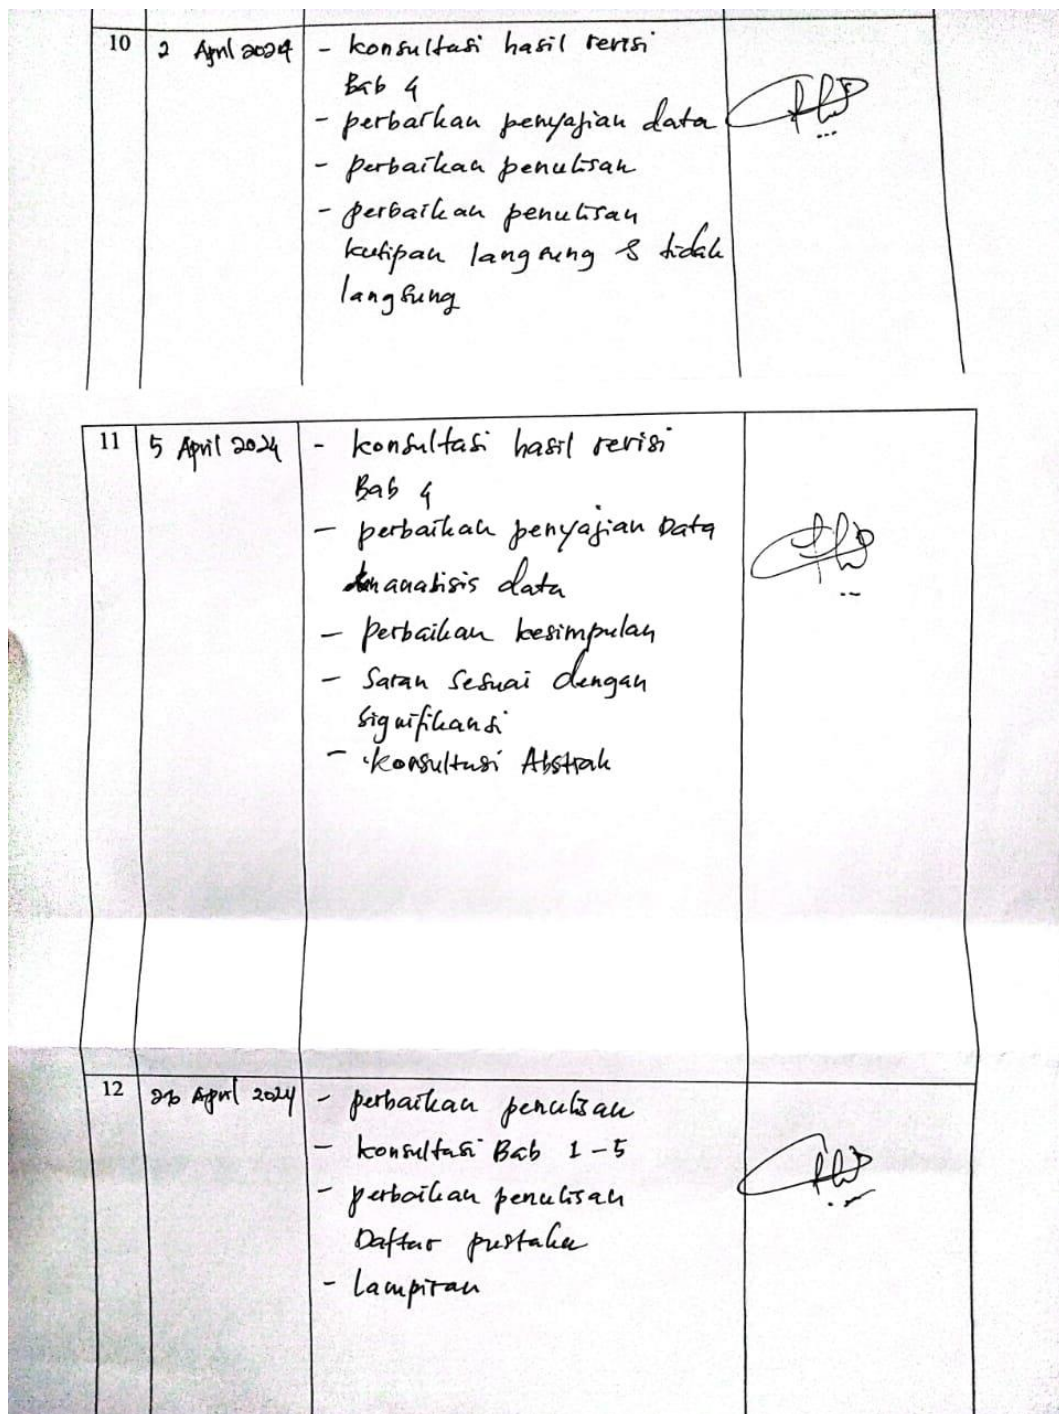 10 2 April 2024 - konsultasi hasil revisi
Bab 4
- perbaikan penyajian data
- perbaikan penulisan
- perbaikan penulisan
kutipan langsung & tidak
langsung
11 5 April 2024 - konsultasi hasil revisi
Bab 4
- perbaikan penyajian Data
analisis data
- perbaikan kesimpulan
- Saran sesuai dengan
signifikansi
- konsultasi Abstrak
12 April 2024 - perbaikan penulisan
- konsultasi Bab 1-5
- perbaikan penulisan
Daftar pustaka
- Lampiran